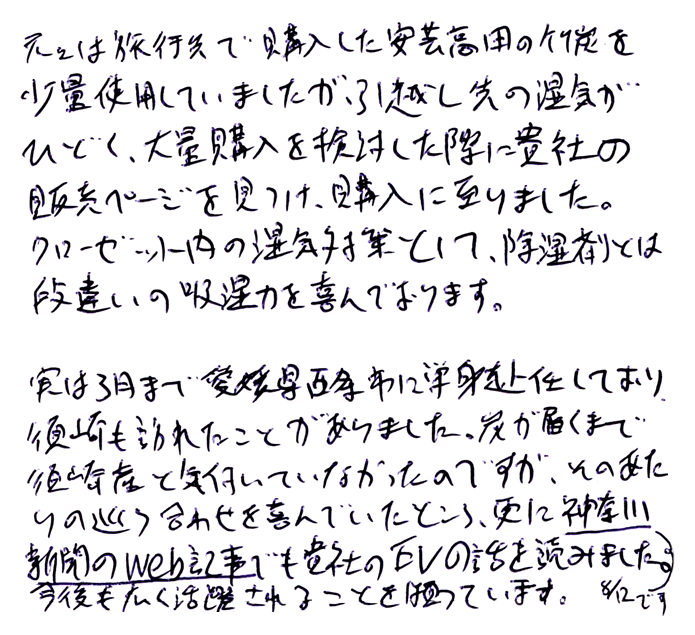 元々は旅行先で購入した安芸高田の竹炭を
少量使用していましたが、引越し先の湿気が
ひどく、大量購入を検討した際に貴社の
販売ページを見つけ、購入に至りました。
クローゼット内の湿気対策として、除湿剤とは
段違いの吸湿力を喜んでおります。
実は3月まで愛媛県西条市に単身赴任しており
須崎も訪れたことがありました。炭が届くまで
須崎産と気付いていなかったのですが、そのあた
りの巡り合わせを喜んでいたところ、更に神奈川
新聞のweb記事でも貴社のEVの話を読みました。
今後も広く活躍されることを願っています。 8/12です